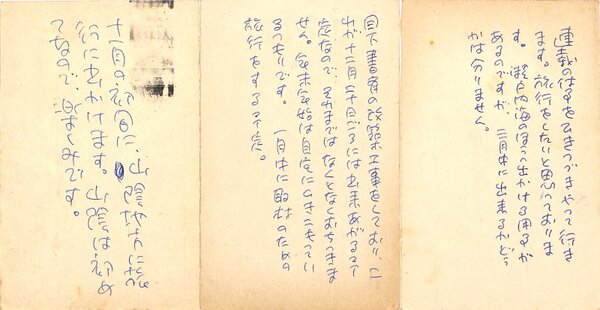 連載の仕事をひきつづきやって行き
ます。旅行をしたいと思っておりま
す。瀬戸内海のほうへ出かける用が
あるのですが、三月中に出来るかどう
かは分りません。
目下書庫の改築工事をしており、こ
れが十二月二十日ごろには出来あがる予
定なので、それまではなんとなくおちつきま
せん。年末年始は自宅にひきこもってい
るつもりです。 一月中に取材のための
旅行をする予定。
十一月の初旬に、山陰地方に旅
行に出かけます。山陰は初め
てなので、楽しみです。